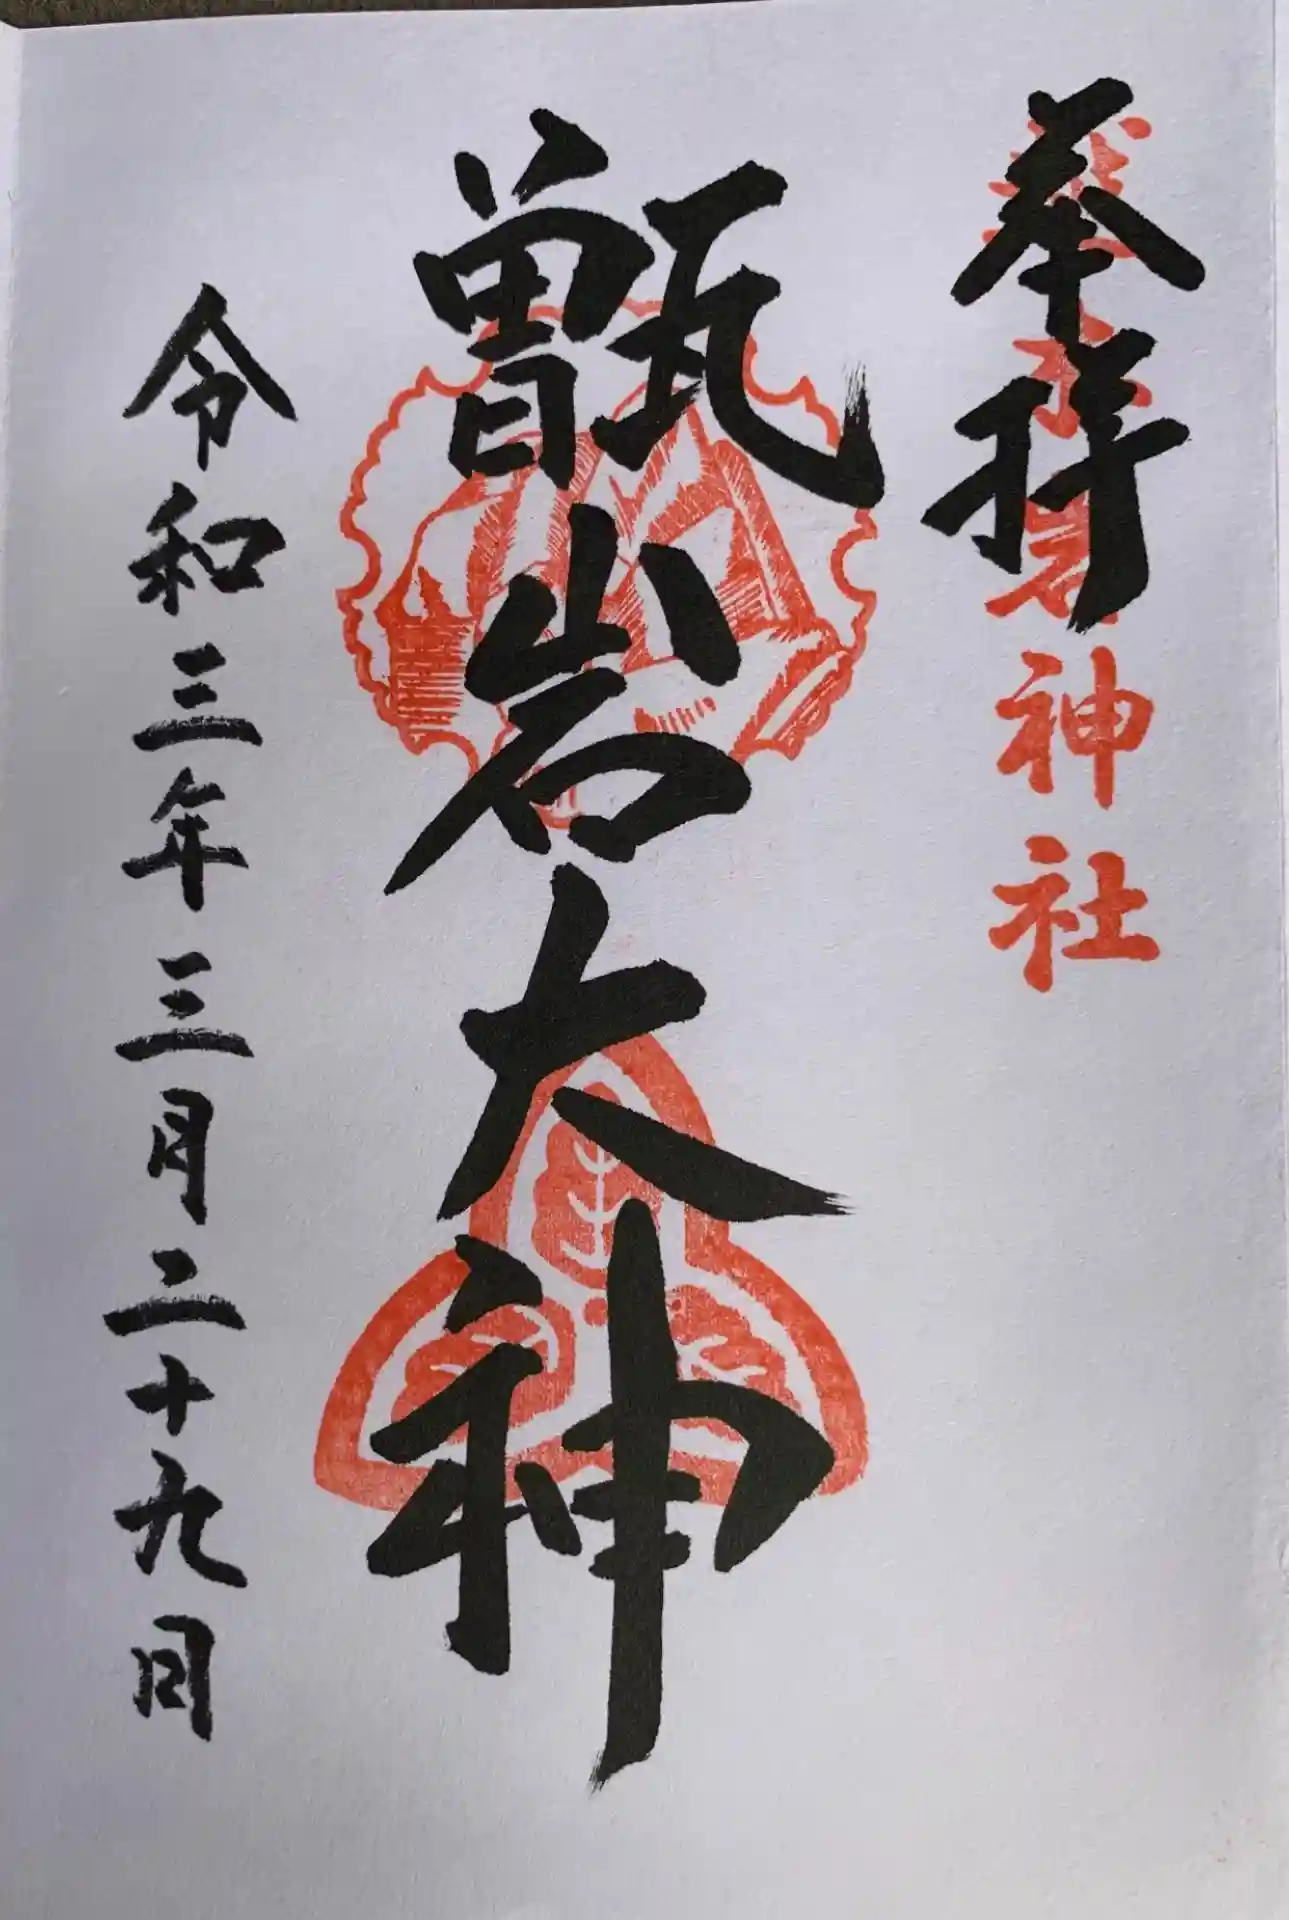 奉拝
越木岩神社
甑岩大神
令和三年三月二十九日